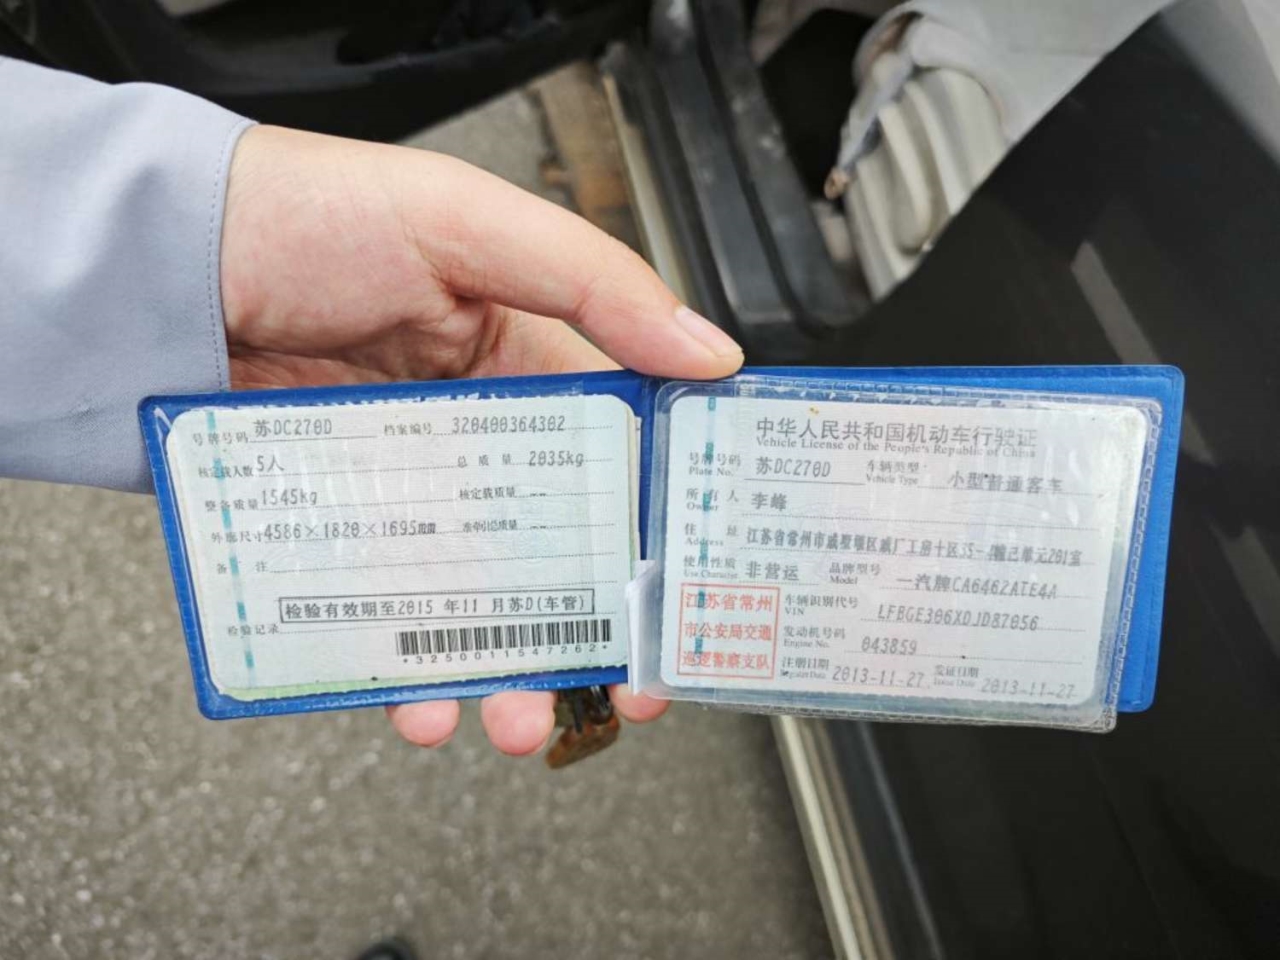 号牌号码 苏DC270D 档案编号 320400364302
核定载人数 5人 总质量 2035kg
整备质量 1545kg 核定载质量 --
外廓尺寸 4586×1820×1695 准牵引总质量 --
备注
检验有效期至2015 年11 月苏D(车管)
检验记录
*3250011547262*
中华人民共和国机动车行驶证
Vehicle License of the People's Republic of China
号牌号码 苏DC270D 车辆类型 小型普通客车
Plate No. Vehicle Type
所有人 李峰
Owner
住址 江苏省常州市戚墅堰区戚厂工房十区35-
Address 己单元201室
使用性质 非营运 品牌型号 一汽牌CA6462ATE4A
Use Character Model
江苏省常州
市公安局交通
巡逻警察支队
车辆识别代号 LFBGE306XDJD87056
VIN
发动机号码 043859
Engine No.
注册日期 2013-11-27 发证日期 2013-11-27
Register Date Issue Date